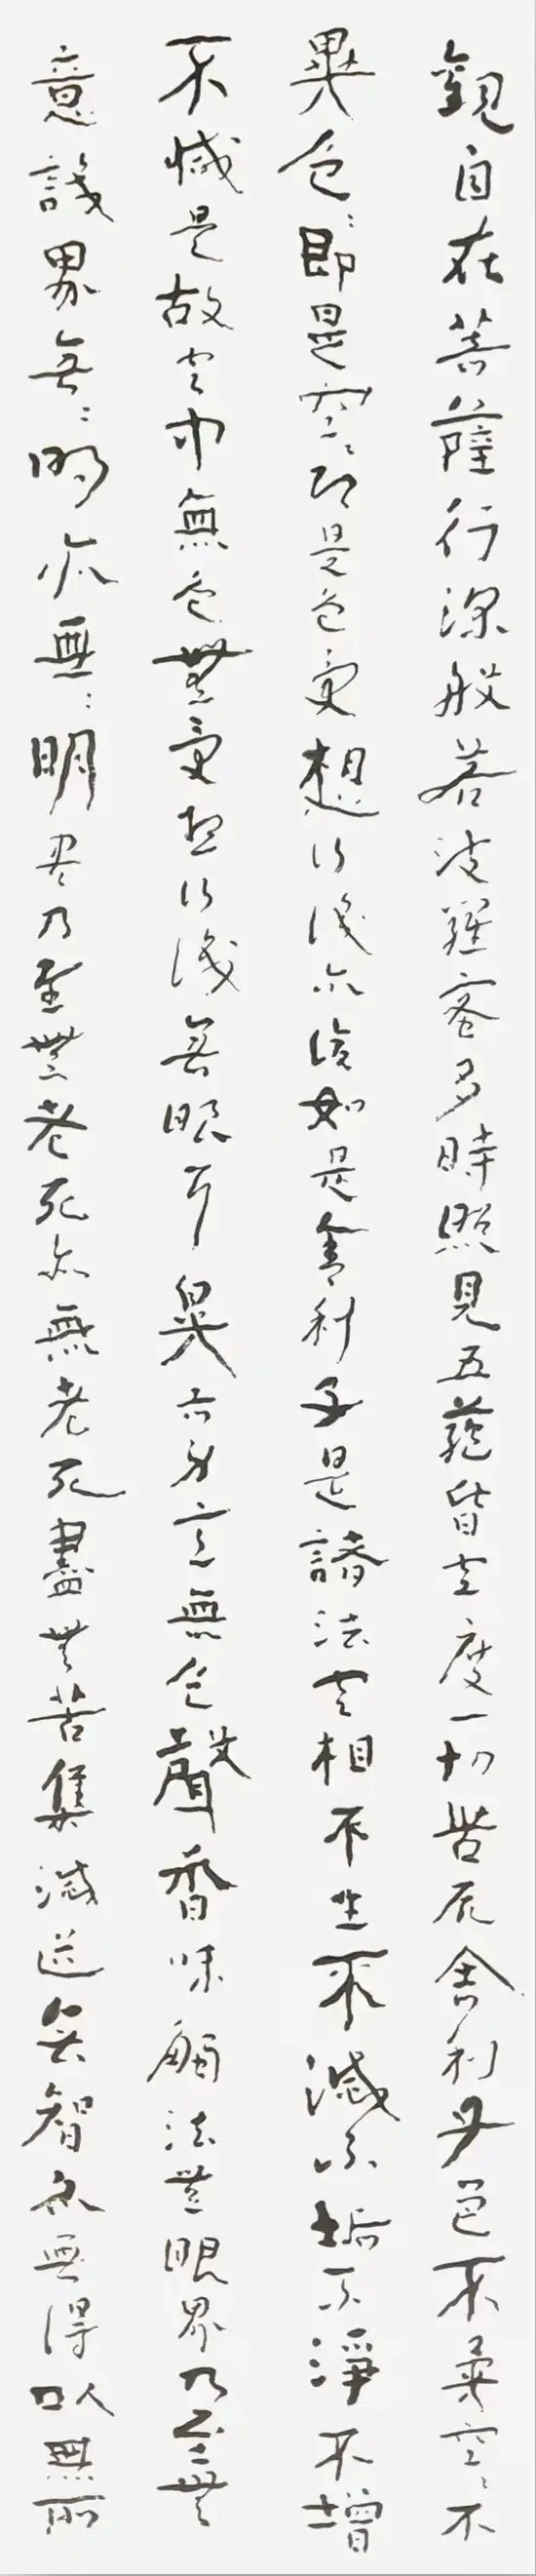 觀自在菩薩行深般若波羅蜜多時照見五蘊皆空度一切苦厄舍利子色不異空〻不
異色〻即是空〻即是色受想行識亦復如是舍利子是諸法空相不生不滅不垢不淨不增
不減是故空中無色無受想行識無眼耳鼻舌身意無色聲香味觸法無眼界乃至無
意識界無〻明亦無〻明盡乃至無老死亦無老死盡無苦集滅道無智亦無得以無所